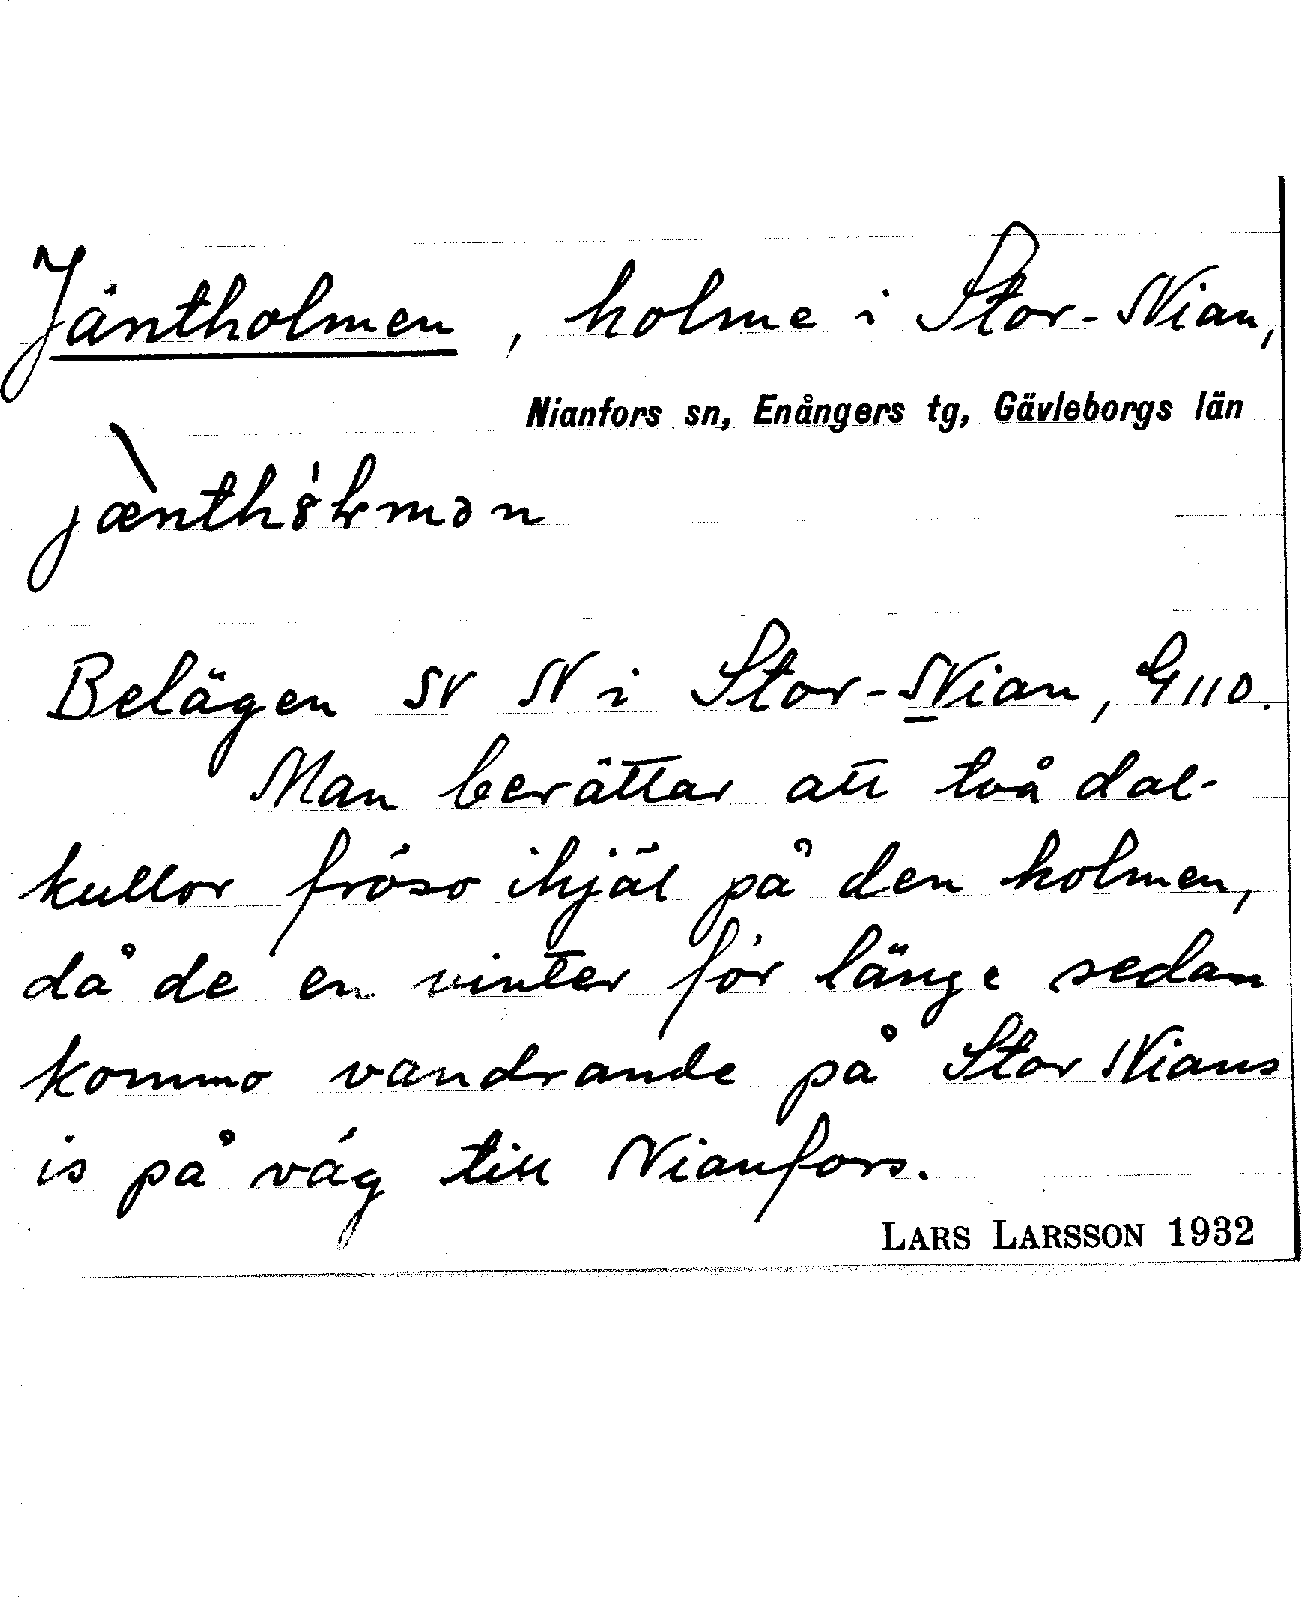 Jäntholmen, holme i Stor-Nian,
Nianfors sn, Enångers tg, Gävleborgs län
Belägen N i Stor-Nian, G110.
Man berättar att två dal-
kullor fröso ihjäl på den holmen,
då de en vinter för länge sedan
kommo vandrande på Stor Nians
is på väg till Nianfors.
LARS LARSSON 1932